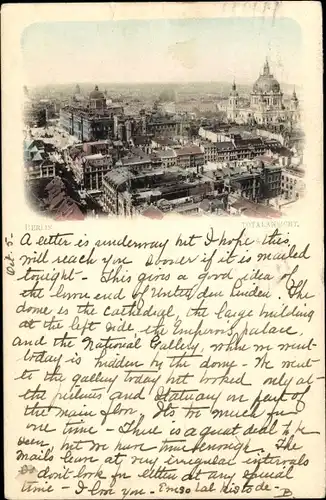 BERLIN
TOTALANSICHT.
Oct. 5-
A letter is underway but I hope this
will reach you sooner if it is mailed
tonight - This gives a good idea of
the lower end of Unter den Linden. The
dome is the cathedral, the large building
at the left side, the Emperor's palace,
and the National Gallery, where we went
today is hidden by the dome - We went
to the gallery today but looked only at
the pictures and statuary on part of
the main floor. It's too much for
one time - There is a great deal to be
seen, but we have time enough. The
mails leave at very irregular intervals
so don't look for letters at any usual
time - I love you -